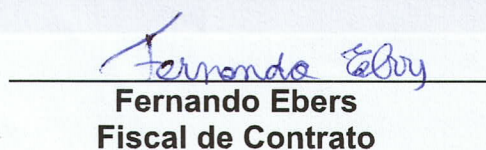 Fernando Ebers
Fernando Ebers
Fiscal de Contrato